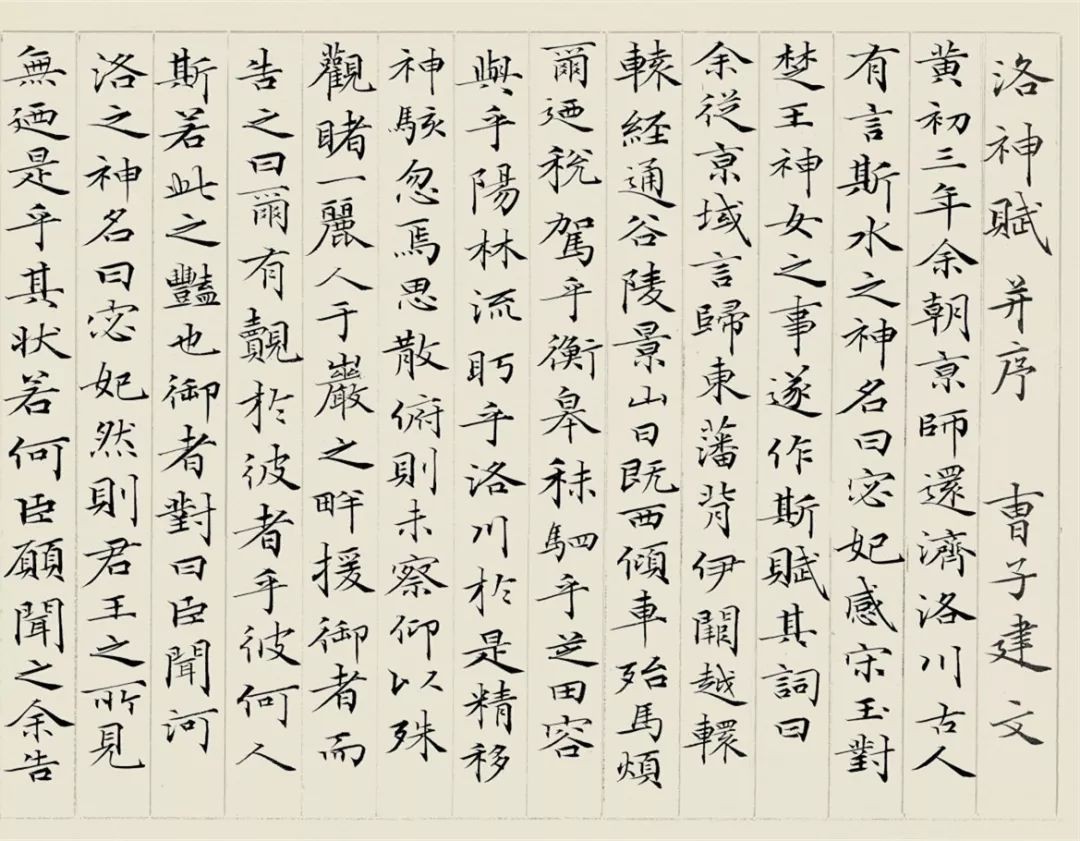 洛神賦并序 曹子建文
黄初三年余朝京師還濟洛川古人
有言斯水之神名曰宓妃感宋玉對
楚王神女之事遂作斯賦其詞曰
余從京域言歸東藩背伊闕越轘
轅経通谷陵景山日既西傾車殆馬煩
爾迺稅駕乎衡皋秣駟乎芝田容
與乎陽林流眄乎洛川於是精移
神駭忽焉思散俯則未察仰以殊
觀睹一麗人于巖之畔援御者而
告之曰爾有覿於彼者乎彼何人
斯若此之豔也御者對曰臣聞河
洛之神名曰宓妃然則君王之所見
無迺是乎其状若何臣願聞之余告